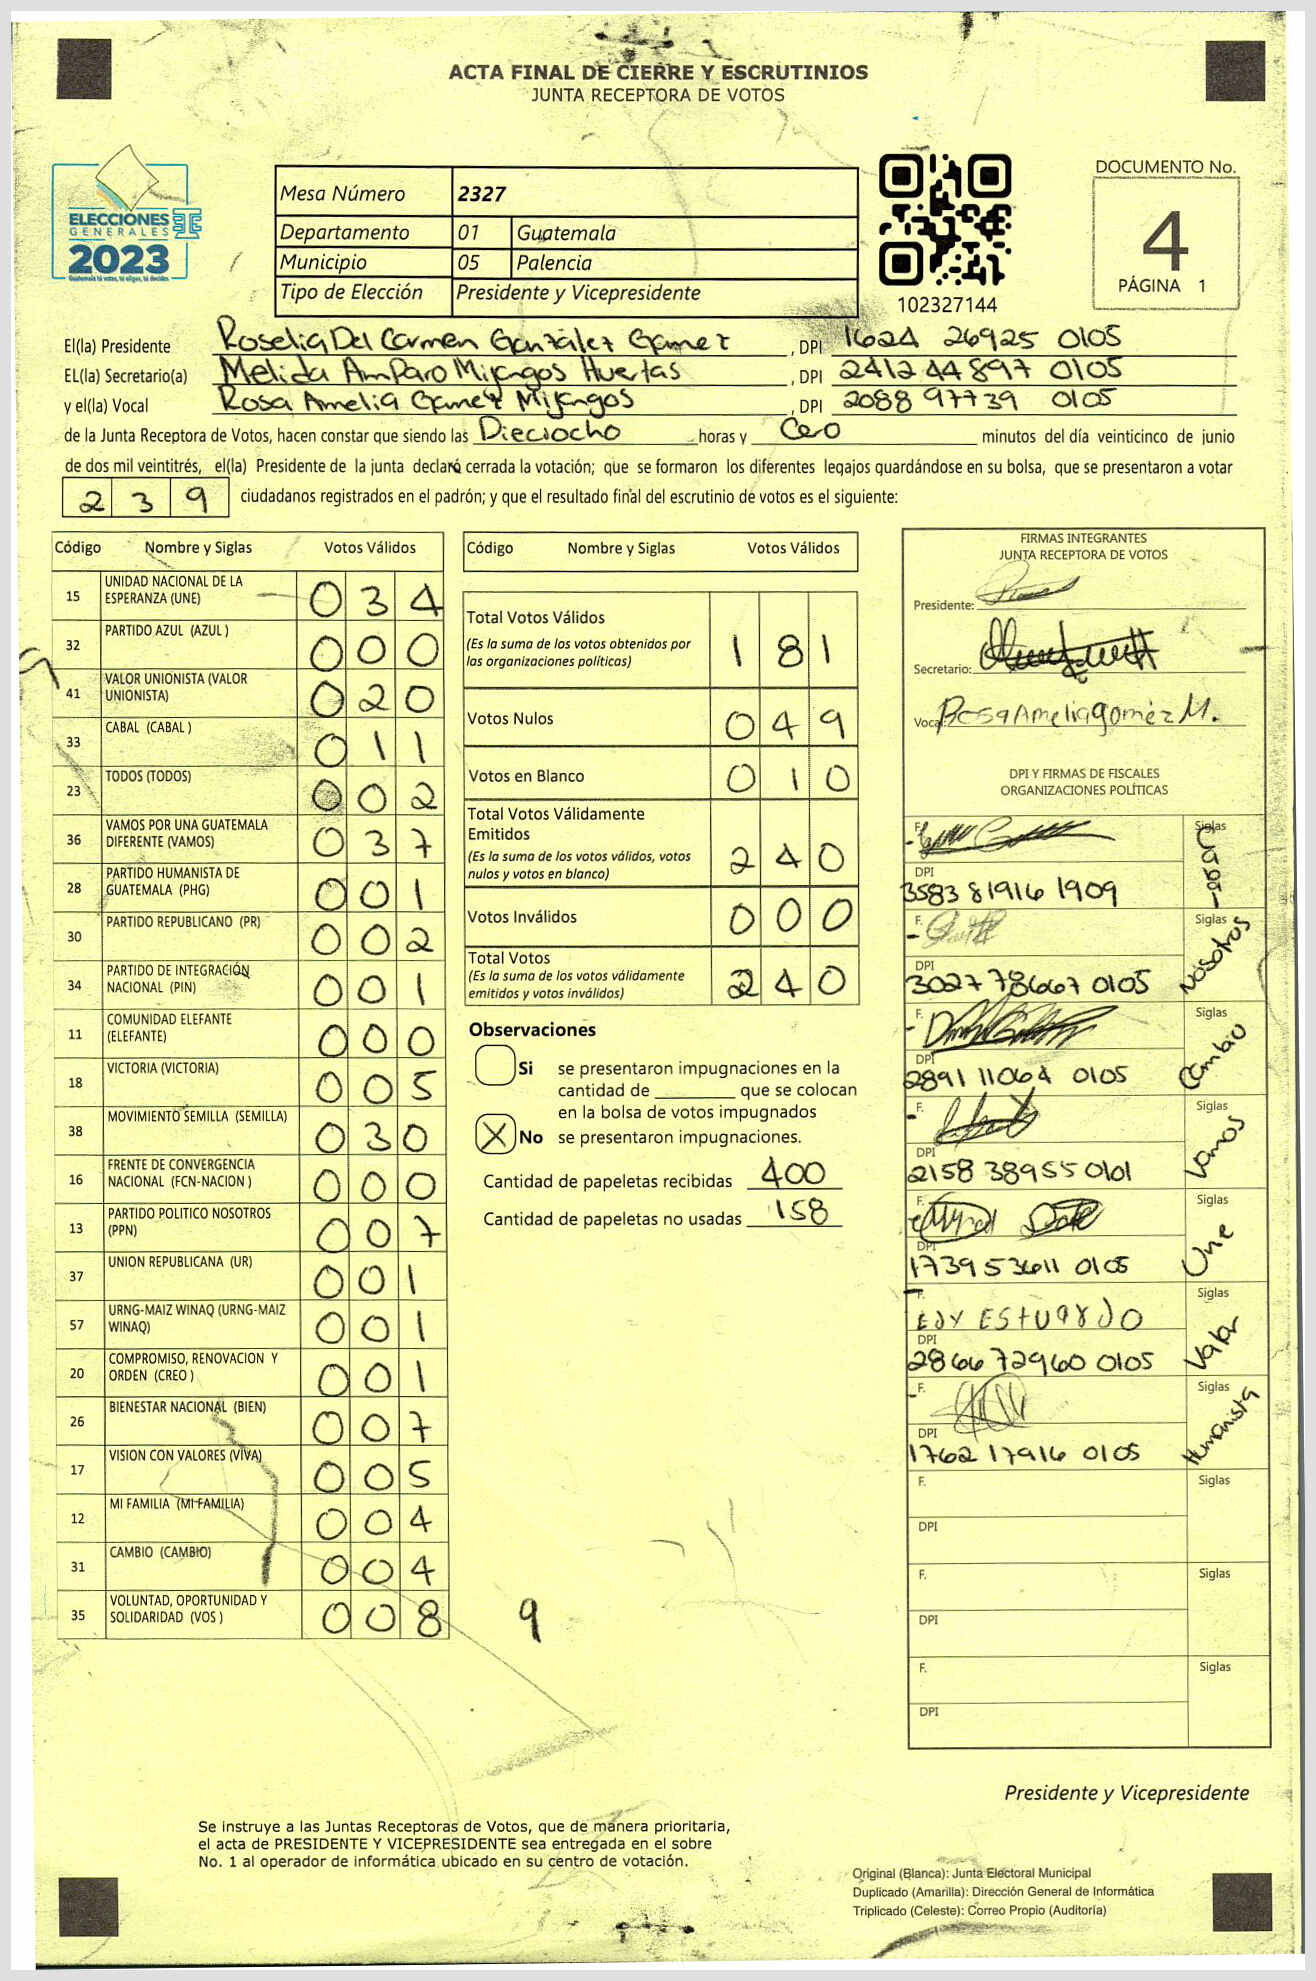 ACTA FINAL DE CIERRE Y ESCRUTINIOS
JUNTA RECEPTORA DE VOTOS
ELECCIONES
GENERALES
2023
Guatemala tú votas, tú eliges, tú decides
Mesa Número 2327
Departamento 01 Guatemala
Municipio 05 Palencia
Tipo de Elección Presidente y Vicepresidente
102327144
DOCUMENTO No.
4
PÁGINA 1
El(la) Presidente Roselia Del Carmen González Gamez, DPI 1624 26925 0105
EL(la) Secretario(a) Melida Amparo Mijangos Huertas, DPI 2412 44897 0105
y el(la) Vocal Rosa Amelia Gamez Mijangos, DPI 2088 97739 0105
de la Junta Receptora de Votos, hacen constar que siendo las Dieciocho horas y Cero minutos del día veinticinco de junio
de dos mil veintitrés, el(la) Presidente de la junta declaró cerrada la votación; que se formaron los diferentes legajos guardándose en su bolsa, que se presentaron a votar
239 ciudadanos registrados en el padrón; y que el resultado final del escrutinio de votos es el siguiente:
Código Nombre y Siglas Votos Válidos
15 UNIDAD NACIONAL DE LA ESPERANZA (UNE) 034
32 PARTIDO AZUL (AZUL ) 000
41 VALOR UNIONISTA (VALOR UNIONISTA) 020
33 CABAL (CABAL ) 011
23 TODOS (TODOS) 002
36 VAMOS POR UNA GUATEMALA DIFERENTE (VAMOS) 037
28 PARTIDO HUMANISTA DE GUATEMALA (PHG) 001
30 PARTIDO REPUBLICANO (PR) 002
34 PARTIDO DE INTEGRACIÓN NACIONAL (PIN) 001
11 COMUNIDAD ELEFANTE (ELEFANTE) 000
18 VICTORIA (VICTORIA) 005
38 MOVIMIENTO SEMILLA (SEMILLA) 030
16 FRENTE DE CONVERGENCIA NACIONAL (FCN-NACION ) 000
13 PARTIDO POLITICO NOSOTROS (PPN) 007
37 UNION REPUBLICANA (UR) 001
57 URNG-MAIZ WINAQ (URNG-MAIZ WINAQ) 001
20 COMPROMISO, RENOVACION Y ORDEN (CREO ) 001
26 BIENESTAR NACIONAL (BIEN) 007
17 VISION CON VALORES (VIVA) 005
12 MI FAMILIA (MI FAMILIA) 004
31 CAMBIO (CAMBIO) 004
35 VOLUNTAD, OPORTUNIDAD Y SOLIDARIDAD (VOS ) 008
9
Código Nombre y Siglas Votos Válidos
Total Votos Válidos
(Es la suma de los votos obtenidos por las organizaciones políticas) 181
Votos Nulos 049
Votos en Blanco 010
Total Votos Válidamente Emitidos
(Es la suma de los votos válidos, votos nulos y votos en blanco) 240
Votos Inválidos 000
Total Votos
(Es la suma de los votos válidamente emitidos y votos inválidos) 240
Observaciones
Si se presentaron impugnaciones en la
cantidad de ________ que se colocan
en la bolsa de votos impugnados
X No se presentaron impugnaciones.
Cantidad de papeletas recibidas 400
Cantidad de papeletas no usadas 158
FIRMAS INTEGRANTES
JUNTA RECEPTORA DE VOTOS
Presidente:
Secretario:
Vocal: Rosa Amelia gomez M.
DPI Y FIRMAS DE FISCALES
ORGANIZACIONES POLÍTICAS
F. Siglas
DPI 3583 81916 1909
F. Siglas Nosotros
DPI 3027 78667 0105
F. Siglas Cambio
DPI 2891 11064 0105
F. Siglas Vamos
DPI 2158 38955 0101
F. Siglas Une
DPI 1739 53611 0105
F. EDY ESTUARDO Siglas Valor
DPI 2866 72960 0105
F. Siglas Humanista
DPI 1762 17916 0105
F. Siglas
DPI
F. Siglas
DPI
F. Siglas
DPI
Presidente y Vicepresidente
Se instruye a las Juntas Receptoras de Votos, que de manera prioritaria,
el acta de PRESIDENTE Y VICEPRESIDENTE sea entregada en el sobre
No. 1 al operador de informática ubicado en su centro de votación.
Original (Blanca): Junta Electoral Municipal
Duplicado (Amarilla): Dirección General de Informática
Triplicado (Celeste): Correo Propio (Auditoría)